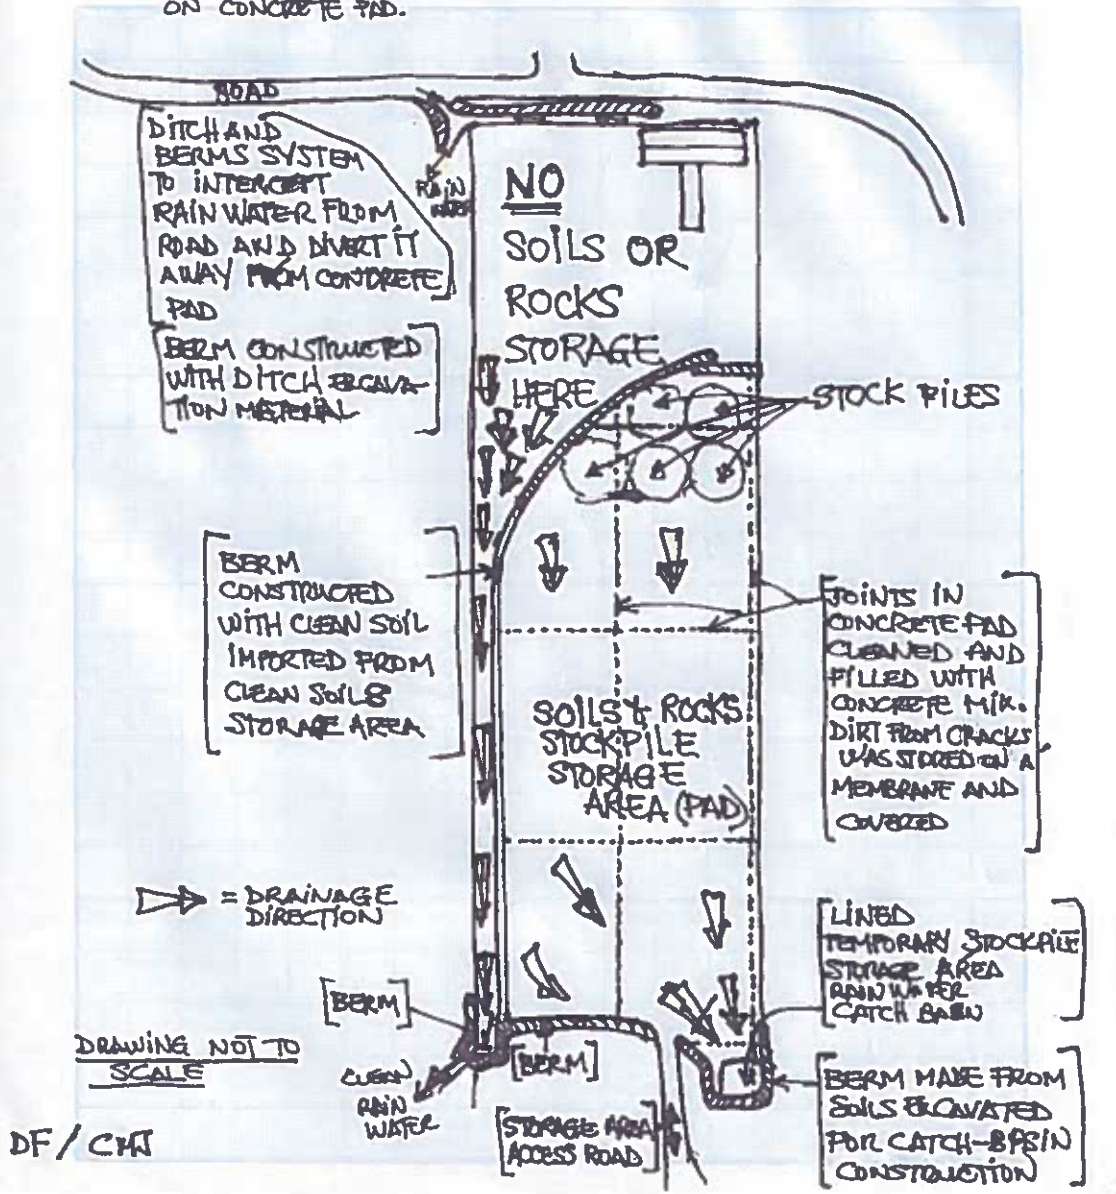 ON CONCRETE PAD.
ROAD
DITCH AND
BERMS SYSTEM
TO INTERCEPT
RAIN WATER FROM
ROAD AND DIVERT IT
AWAY FROM CONDRETE
PAD
RAIN
WATER
BERM CONSTRUCTED
WITH DITCH EXCAVA-
TION MATERIAL
NO
SOILS OR
ROCKS
STORAGE
HERE
STOCK PILES
BERM
CONSTRUCTED
WITH CLEAN SOIL
IMPORTED FROM
CLEAN SOILS
STORAGE AREA
JOINTS IN
CONCRETE PAD
CLEANED AND
FILLED WITH
CONCRETE MIX.
DIRT FROM CRACKS
WAS STORED ON A
MEMBRANE AND
COVERED
SOILS & ROCKS
STOCKPILE
STORAGE
AREA (PAD)
= DRAINAGE
DIRECTION
LINED
TEMPORARY STOCKPILE
STORAGE AREA
RAIN WATER
CATCH BASIN
[BERM]
DRAWING NOT TO
SCALE
CLEAN
RAIN
WATER
[BERM]
STORAGE AREA
ACCESS ROAD
BERM MADE FROM
SOILS EXCAVATED
FOR CATCH-BASIN
CONSTRUCTION
DF / CMJ